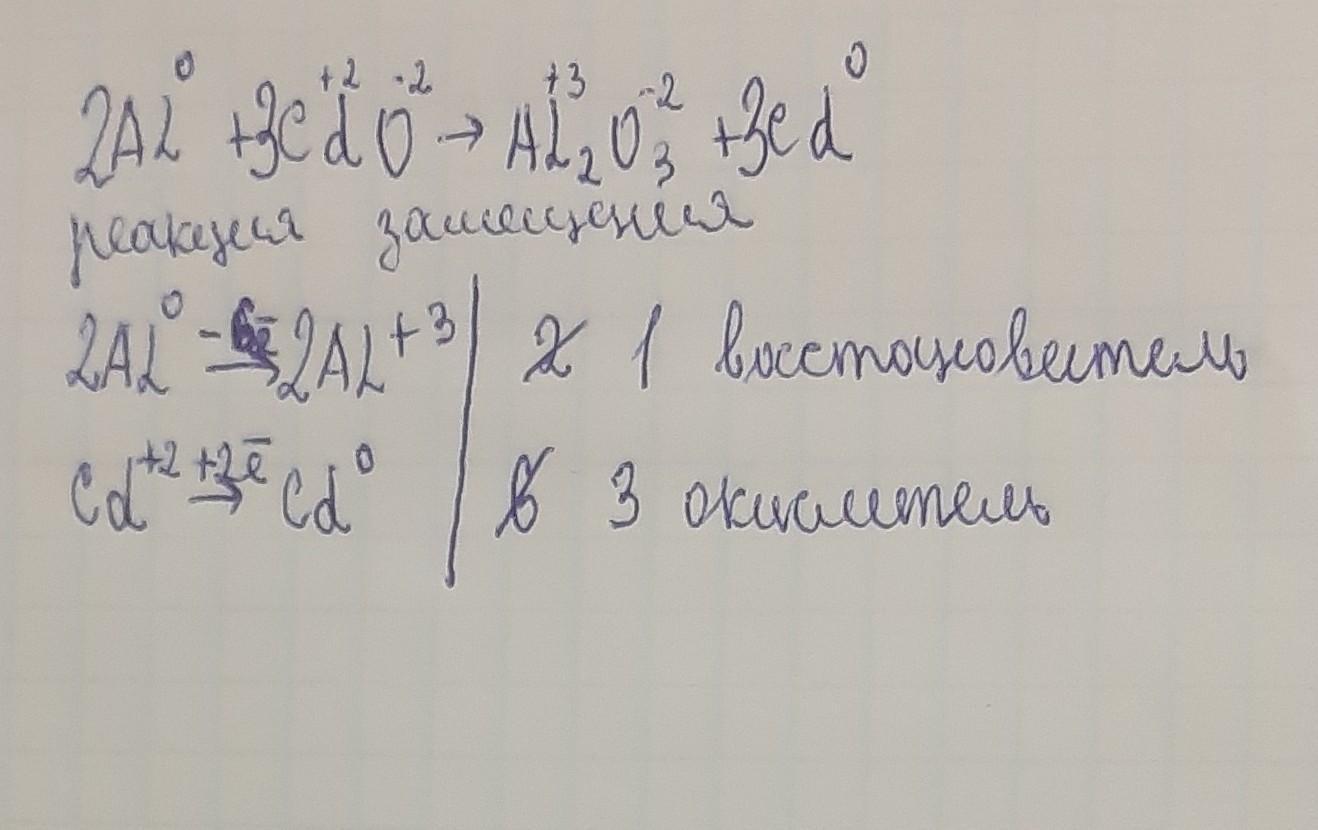 2Al⁰ + 3Cd⁺²O⁻² → Al₂⁺³O₃⁻² + 3Cd⁰
реакция замещения
2Al⁰ –6ē→ 2Al⁺³ | 2 1 восстановитель
Cd⁺² +2ē→ Cd⁰ | 6 3 окислитель